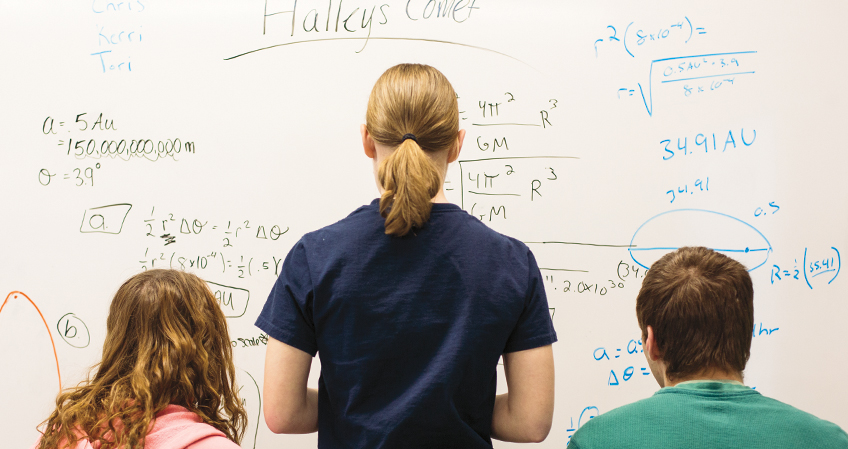 Chris
Kerri
Tori
Halleys Comet
a = .5 Au
= 150,000,000,000 m
θ = 3.9°
a.
½ r² Δθ = ½ r² Δθ
½ r² (8x10⁻⁴) = ½ (.5
AU
b
= 4π² R³
GM
4π² R³
GM
2.0x10³⁰
(34.
r² (8x10⁻⁴) =
r = √ 0.5AU² · 3.9
8x10⁻⁴
34.91 AU
34.91
0.5
R = ½ (35.41)
hr
a = a
Δθ =
½